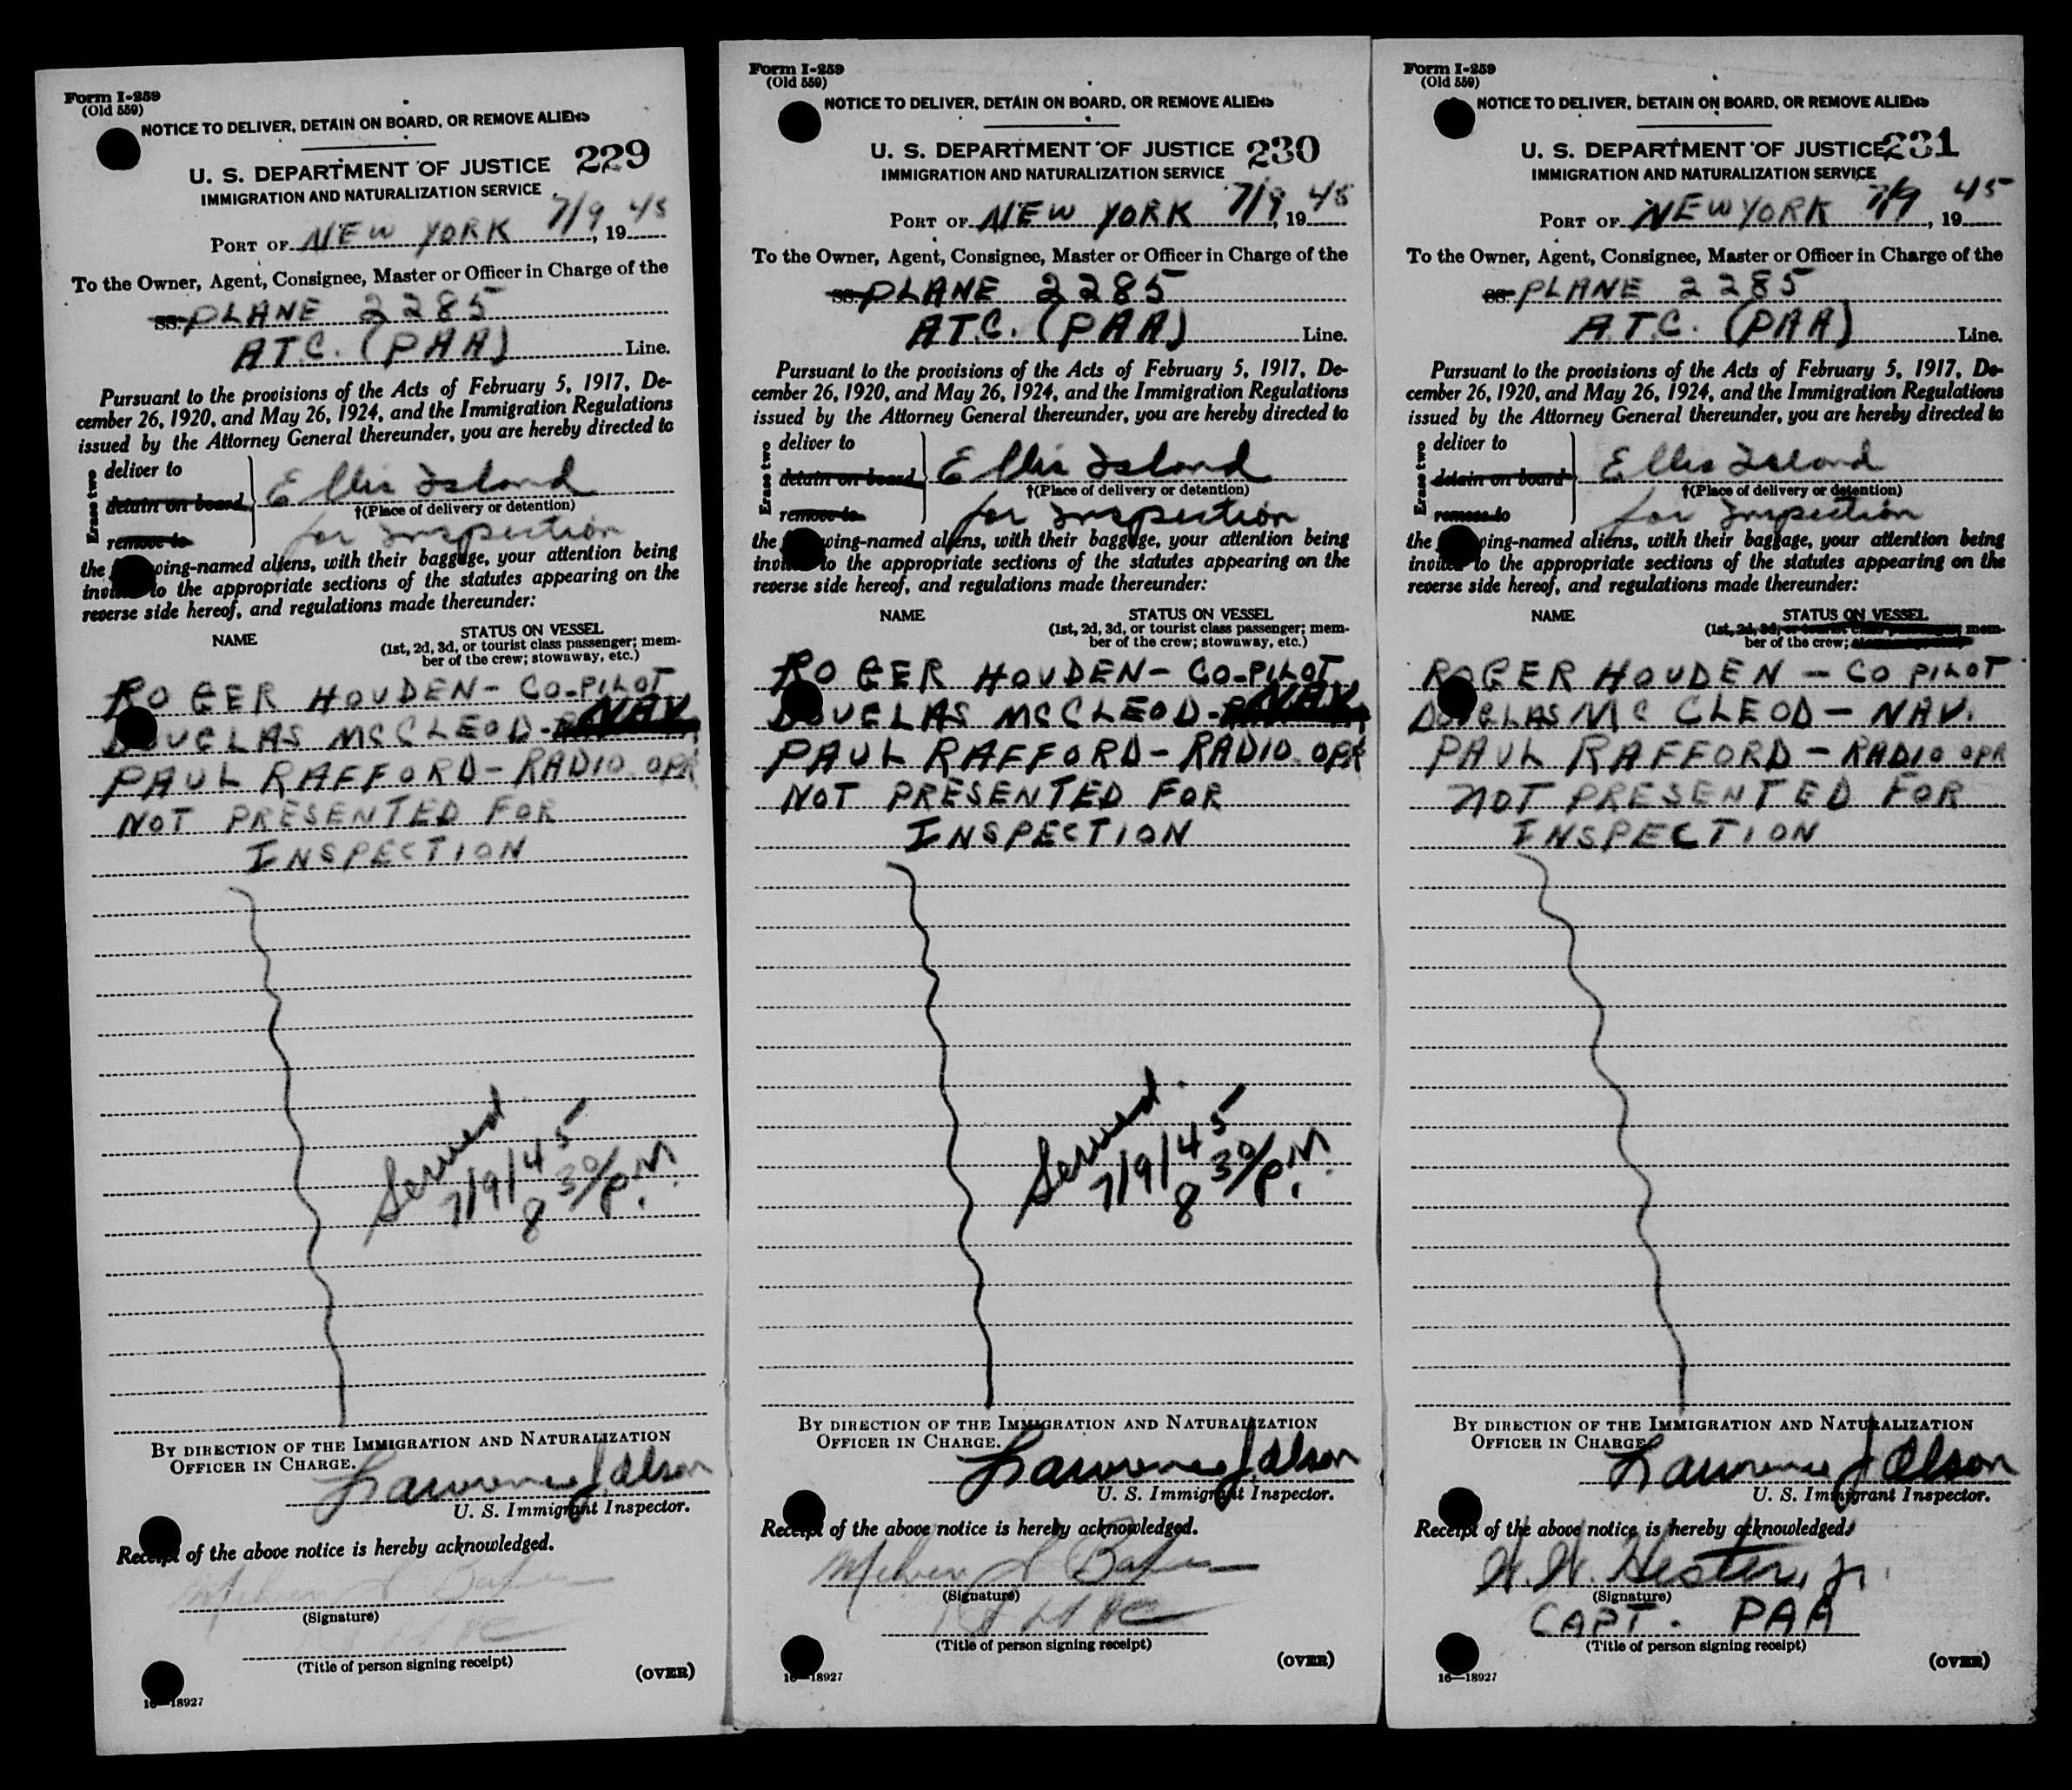 Form I-259
(Old 559)
NOTICE TO DELIVER, DETAIN ON BOARD, OR REMOVE ALIENS
U. S. DEPARTMENT OF JUSTICE 229
IMMIGRATION AND NATURALIZATION SERVICE
PORT OF NEW YORK 7/9, 1945
To the Owner, Agent, Consignee, Master or Officer in Charge of the
SS. PLANE 2285
A.T.C. (PAA) Line.
Pursuant to the provisions of the Acts of February 5, 1917, De-
cember 26, 1920, and May 26, 1924, and the Immigration Regulations
issued by the Attorney General thereunder, you are hereby directed to
Erase two
deliver to
detain on board Ellis Island
†(Place of delivery or detention)
remove to for Inspection
the wing-named aliens, with their baggage, your attention being
invited to the appropriate sections of the statutes appearing on the
reverse side hereof, and regulations made thereunder:
NAME STATUS ON VESSEL
(1st, 2d, 3d, or tourist class passenger; mem-
ber of the crew; stowaway, etc.)
ROGER HOUDEN - CO-PILOT
DOUGLAS MCCLEOD - NAV
PAUL RAFFORD - RADIO OPR
NOT PRESENTED FOR
INSPECTION
Served
7/9/45
8 30/P.M.
BY DIRECTION OF THE IMMIGRATION AND NATURALIZATION
OFFICER IN CHARGE.
Lawrence J. Olson
U. S. Immigrant Inspector.
Receipt of the above notice is hereby acknowledged.
(Signature)
(Title of person signing receipt)
(OVER)
16—18927
Form I-259
(Old 559)
NOTICE TO DELIVER, DETAIN ON BOARD, OR REMOVE ALIENS
U. S. DEPARTMENT OF JUSTICE 230
IMMIGRATION AND NATURALIZATION SERVICE
PORT OF NEW YORK 7/9, 1945
To the Owner, Agent, Consignee, Master or Officer in Charge of the
SS. PLANE 2285
A.T.C. (PAA) Line.
Pursuant to the provisions of the Acts of February 5, 1917, De-
cember 26, 1920, and May 26, 1924, and the Immigration Regulations
issued by the Attorney General thereunder, you are hereby directed to
Erase two
deliver to
detain on board Ellis Island
†(Place of delivery or detention)
remove to for Inspection
the wing-named aliens, with their baggage, your attention being
invited to the appropriate sections of the statutes appearing on the
reverse side hereof, and regulations made thereunder:
NAME STATUS ON VESSEL
(1st, 2d, 3d, or tourist class passenger; mem-
ber of the crew; stowaway, etc.)
ROGER HOUDEN - CO-PILOT
DOUGLAS MCCLEOD - NAV
PAUL RAFFORD - RADIO OPR
NOT PRESENTED FOR
INSPECTION
Served
7/9/45
8 30/P.M.
BY DIRECTION OF THE IMMIGRATION AND NATURALIZATION
OFFICER IN CHARGE.
Lawrence J. Olson
U. S. Immigrant Inspector.
Receipt of the above notice is hereby acknowledged.
(Signature)
(Title of person signing receipt)
(OVER)
16—18927
Form I-259
(Old 559)
NOTICE TO DELIVER, DETAIN ON BOARD, OR REMOVE ALIENS
U. S. DEPARTMENT OF JUSTICE 231
IMMIGRATION AND NATURALIZATION SERVICE
PORT OF NEW YORK 7/9, 1945
To the Owner, Agent, Consignee, Master or Officer in Charge of the
SS. PLANE 2285
A.T.C. (PAA) Line.
Pursuant to the provisions of the Acts of February 5, 1917, De-
cember 26, 1920, and May 26, 1924, and the Immigration Regulations
issued by the Attorney General thereunder, you are hereby directed to
Erase two
deliver to
detain on board Ellis Island
†(Place of delivery or detention)
remove to for Inspection
the wing-named aliens, with their baggage, your attention being
invited to the appropriate sections of the statutes appearing on the
reverse side hereof, and regulations made thereunder:
NAME STATUS ON VESSEL
(1st, 2d, 3d, or tourist class passenger; mem-
ber of the crew;
ROGER HOUDEN - CO PILOT
DOUGLAS MC CLEOD - NAV.
PAUL RAFFORD - RADIO OPR
NOT PRESENTED FOR
INSPECTION
BY DIRECTION OF THE IMMIGRATION AND NATURALIZATION
OFFICER IN CHARGE
Lawrence J Olson
U. S. Immigrant Inspector.
Receipt of the above notice is hereby acknowledged.
W. W. Hester, Jr.
(Signature)
CAPT. PAA
(Title of person signing receipt)
(OVER)
16—18927